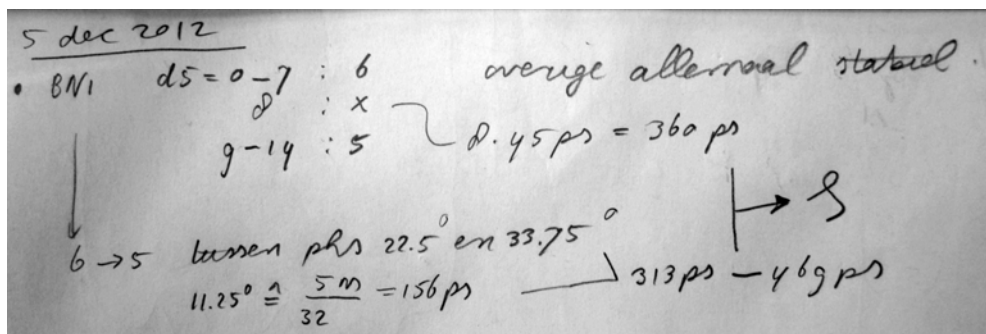 5 dec 2012
• BN1 d5 = 0 – 7 : 6 overige allemaal stabiel.
8 : x 8.45 ps = 360 ps
9 – 14 : 5
6 → 5 tussen phs 22.5° en 33.75°
11.25° ≙ 5 ns / 32 = 156 ps 313 ps – 469 ps